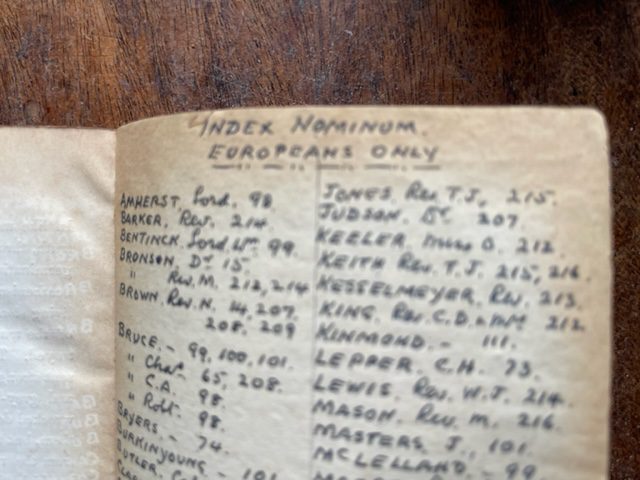 INDEX NOMINUM.
EUROPEANS ONLY
AMHERST, Lord. 98
BARKER, Rev. 214.
BENTINCK, Lord Wm 99.
BRONSON, Dr 15.
" Rev. M. 212, 214
BROWN, Rev. N. 14, 207,
208, 209
BRUCE, - 99, 100, 101.
" Chas 65, 208.
" C.A. 98.
" Robt. 98.
BAYERS. - 74.
BURKINYOUNG - 101
BUTLER,
JONES, Rev T.J., 215.
JUDSON, Dr 207.
KEELER, Miss O. 212.
KEITH Rev. T.J. 215, 216.
KESSELMEYER, Rev. 213.
KING, Rev. C.D. & Mrs 212
KINMOND. - 111.
LEPPER, C.H. 73.
LEWIS, Rev. W.J. 214.
MASON, Rev. M. 216.
MASTERS, J., 101.
McLELLAND. - 99.